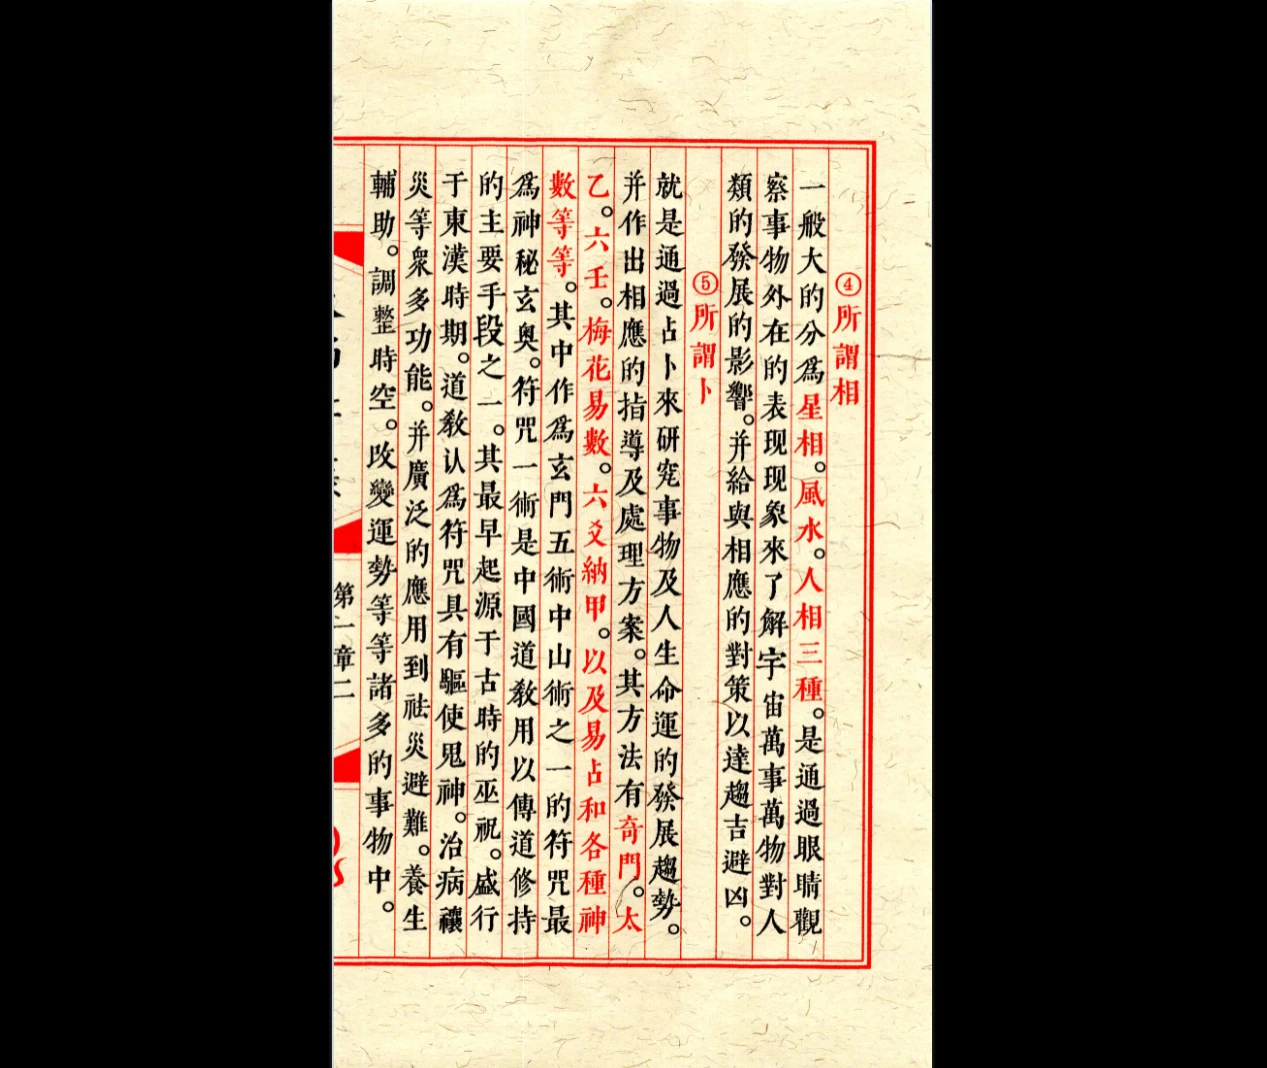 ④所謂相
一般大的分爲星相。風水。人相三種。是通過眼睛觀
察事物外在的表现现象來了解宇宙萬事萬物對人
類的發展的影響。并給與相應的對策以達趨吉避凶。
⑤所謂卜
就是通過占卜來研究事物及人生命運的發展趨勢。
并作出相應的指導及處理方案。其方法有奇門。太
乙。六壬。梅花易數。六爻納甲。以及易占和各種神
數等等。其中作爲玄門五術中山術之一的符咒最
爲神秘玄奥。符咒一術是中國道教用以傳道修持
的主要手段之一。其最早起源于古時的巫祝。盛行
于東漢時期。道教认爲符咒具有驅使鬼神。治病禳
災等衆多功能。并廣泛的應用到祛災避難。養生
輔助。調整時空。改變運勢等等諸多的事物中。
第一章二